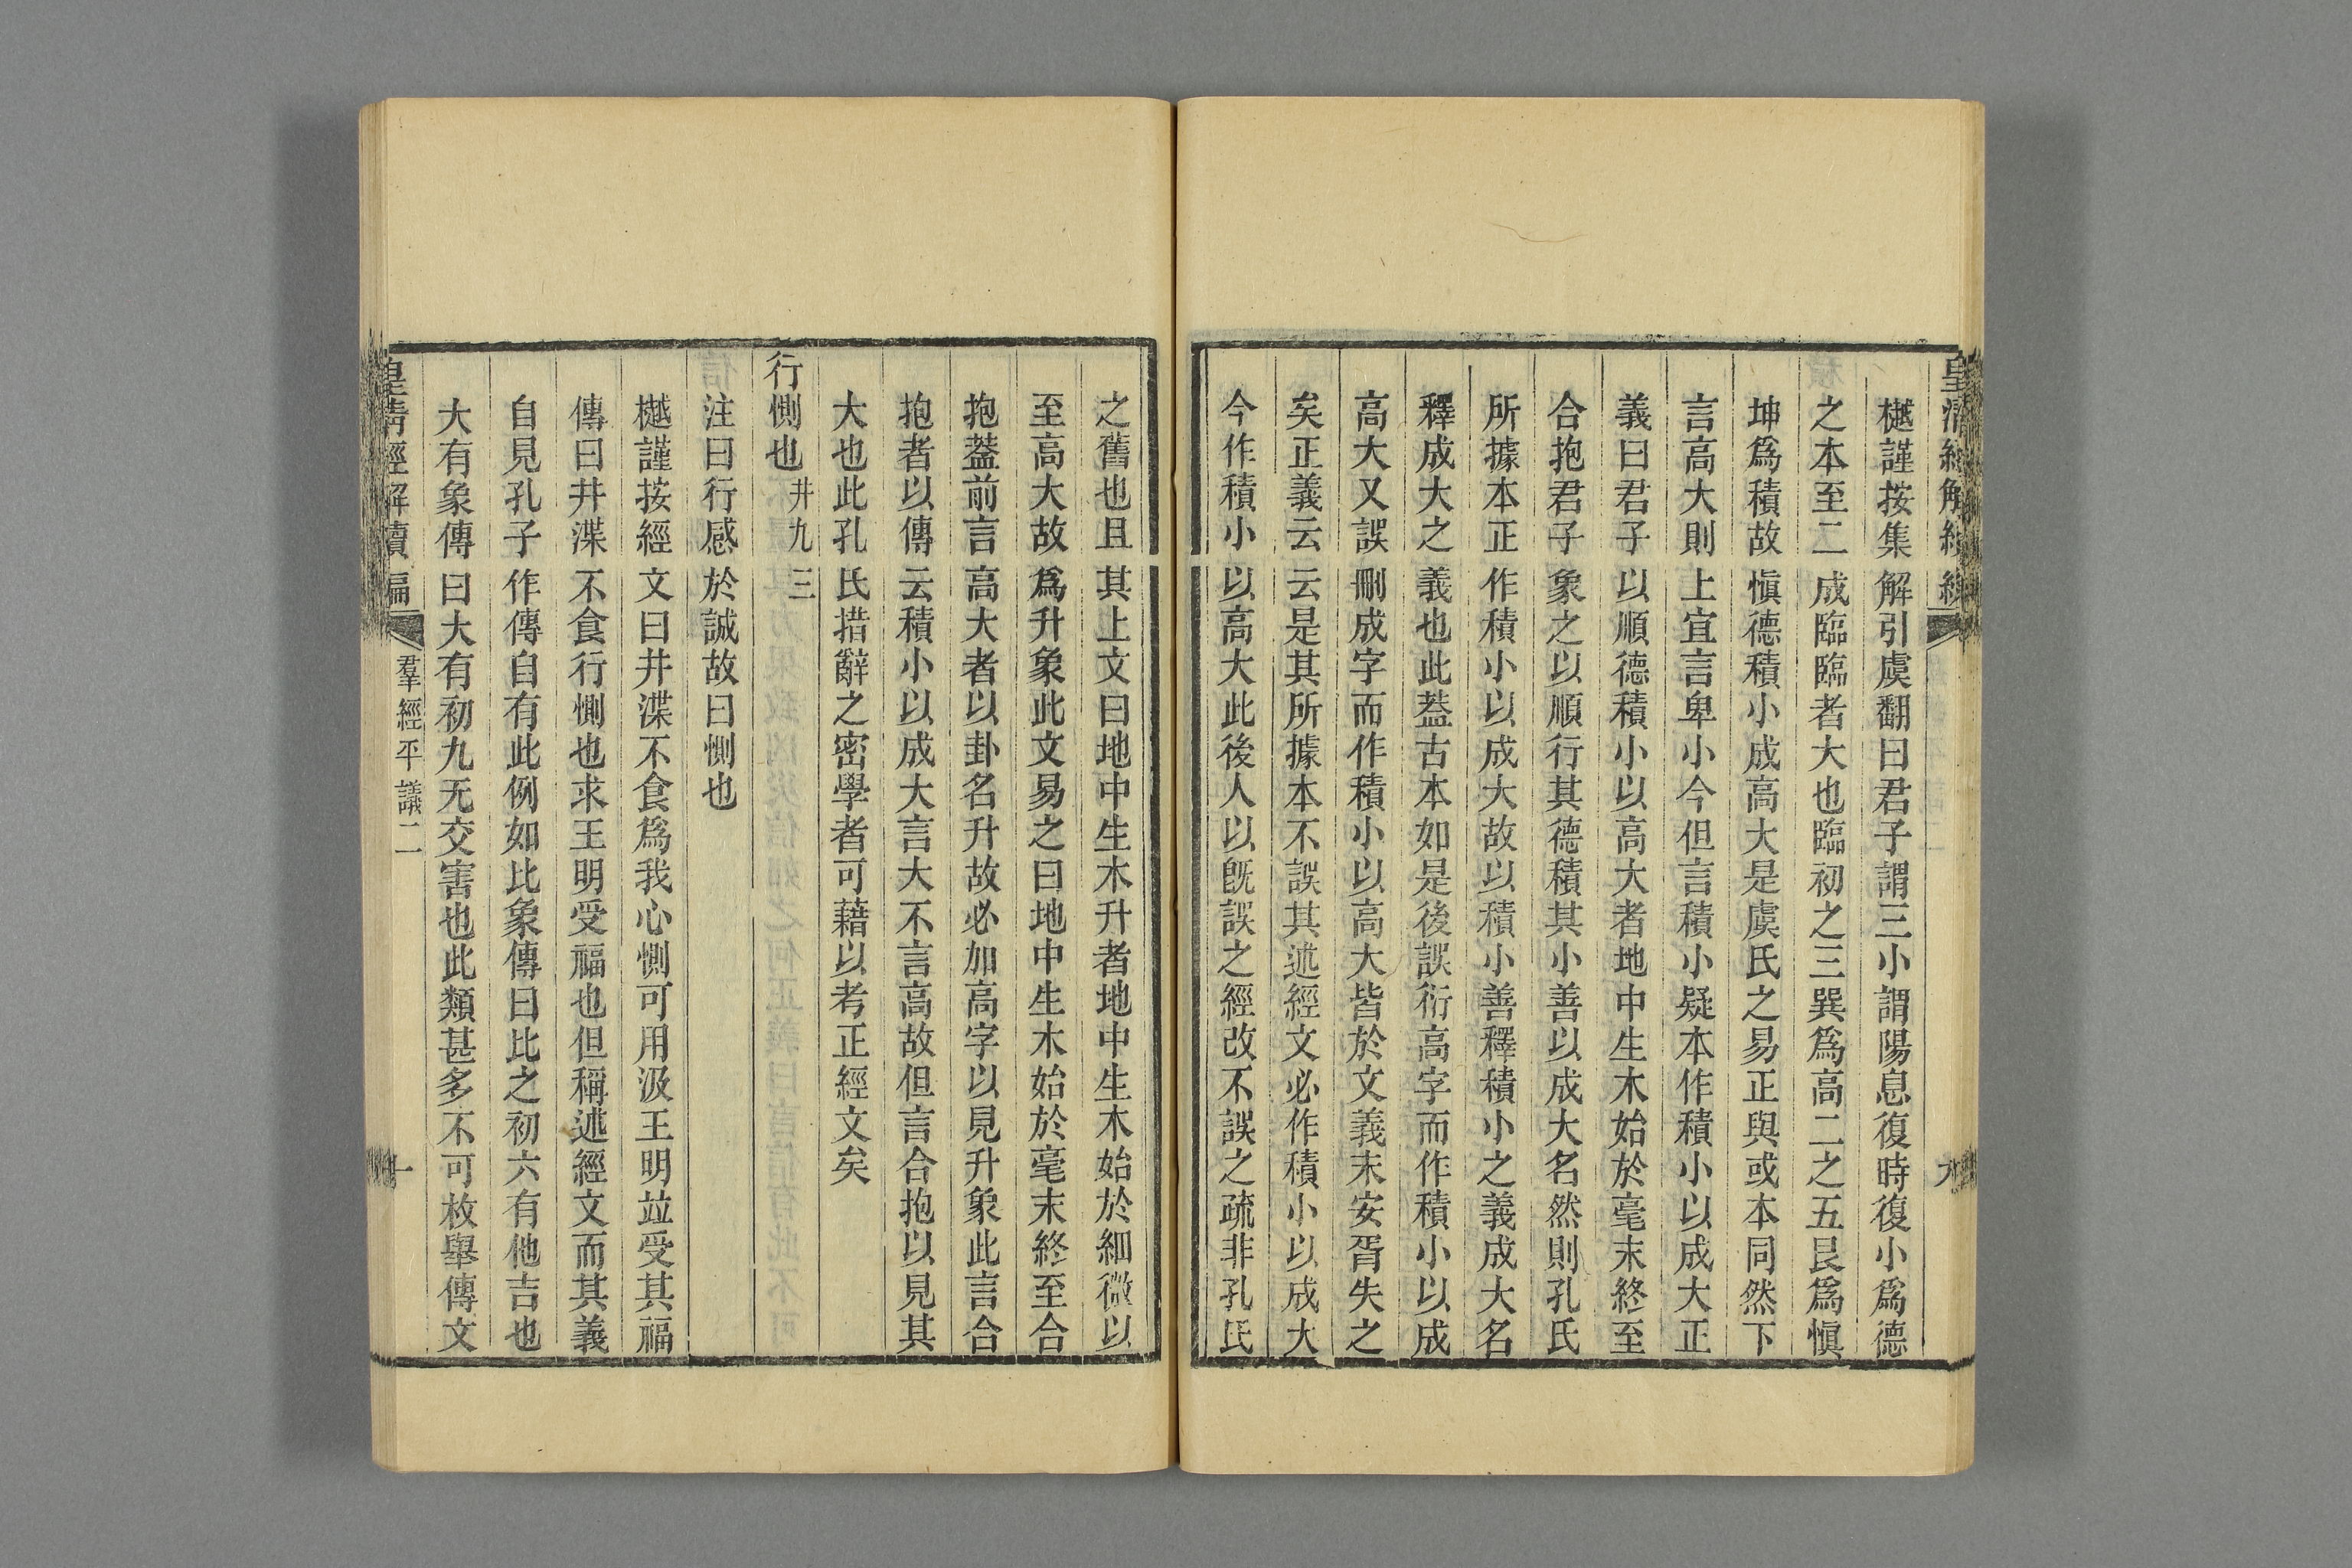 樾謹按集解引虞翻曰君子謂三小謂陽息復時復小爲德
之本至二成臨臨者大也臨初之三巽爲高二之五艮爲愼
坤爲積故愼德積小成高大是虞氏之易正與或本同然下
言高大則上宜言卑小今但言積小疑本作積小以成大正
義曰君子以順德積小以高大者地中生木始於毫末終至
合抱君子象之以順行其德積其小善以成大名然則孔氏
所據本正作積小以成大故以積小善釋積小之義成大名
釋成大之義也此葢古本如是後誤衍高字而作積小以成
高大又誤刪成字而作積小以高大皆於文義未安胥失之
矣正義云云是其所據本不誤其述經文必作積小以成大
今作積小以高大此後人以旣誤之經改不誤之疏非孔氏
之舊也且其上文曰地中生木升者地中生木始於細微以
至高大故爲升象此文易之曰地中生木始於毫末終至合
抱葢前言高大者以卦名升故必加高字以見升象此言合
抱者以傳云積小以成大言大不言高故但言合抱以見其
大也此孔氏措辭之密學者可藉以考正經文矣
行惻也井九三
注曰行感於誠故曰惻也
樾謹按經文曰井渫不食爲我心惻可用汲王明竝受其福
傳曰井渫不食行惻也求王明受福也但稱述經文而其義
自見孔子作傳自有此例如比象傳曰比之初六有他吉也
大有象傳曰大有初九无交害也此類甚多不可枚舉傳文
皇清經解續編 羣經平議二